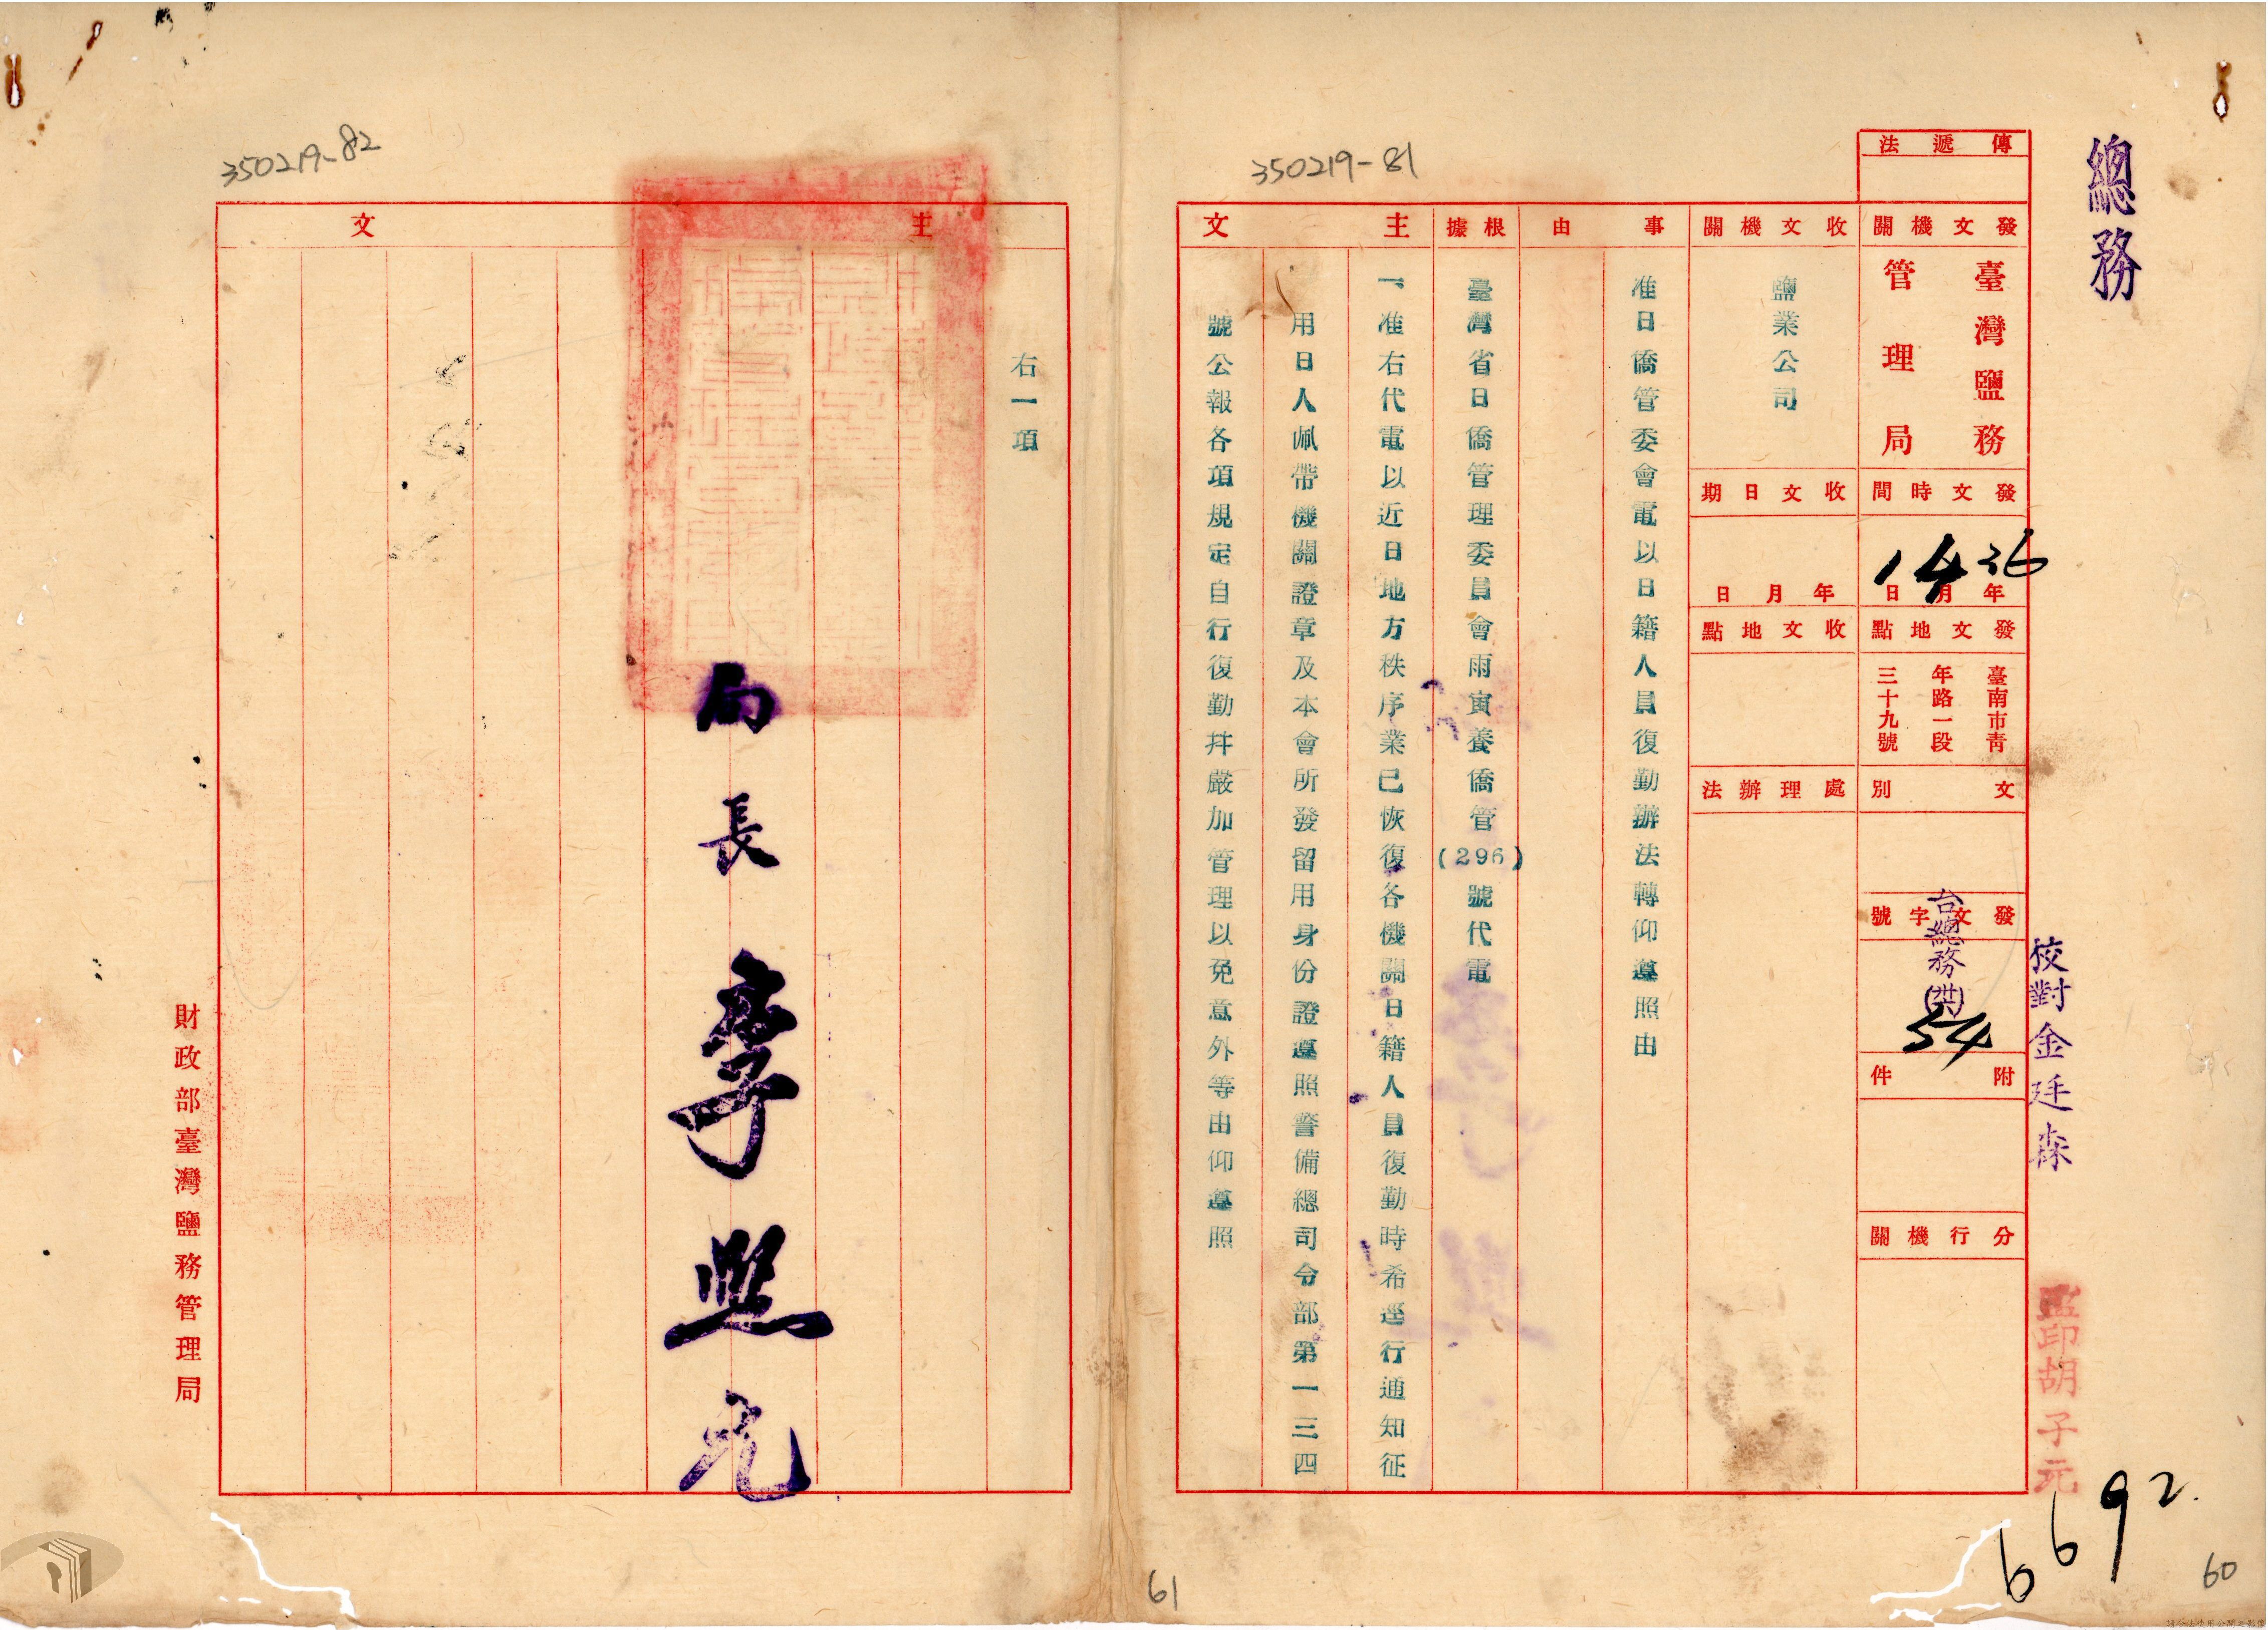 總務
傳遞法
發文機關
臺灣鹽務
管理局
發文時間
36年4月1日
發文地點
臺南市青
年路一段
三十九號
文別
發文字號
台總務(卅六)
54
附件
分行機關
校對金廷森
監印胡子元
6692.
收文機關
鹽業公司
收文日期
年月日
收文地點
處理辦法
事由
准日僑管委會電以日籍人員復勤辦法轉仰遵照由
根據
臺灣省日僑管理委員會雨寅養僑管(296)號代電
主文
一、准右代電以近日地方秩序業已恢復各機關日籍人員復勤時希逕行通知征
用日人佩帶機關證章及本會所發留用身份證遵照警備總司令部第一三四
號公報各項規定自行復勤幷嚴加管理以免意外等由仰遵照
350219-81
60
主文
右一項
局長李照光
財政部臺灣鹽務管理局
350219-82
61